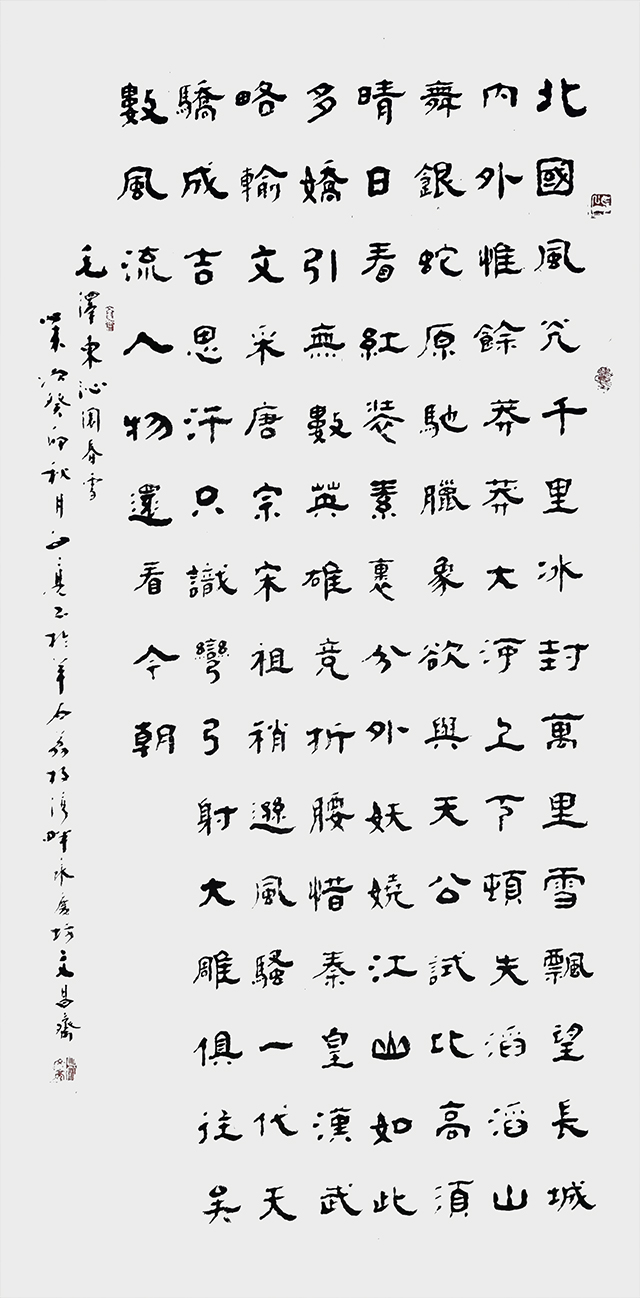 北國風光千里冰封萬里雪飄望長城
内外惟餘莽莽大河上下頓失滔滔山
舞銀蛇原馳臘象欲與天公試比高須
晴日看紅裝素裹分外妖嬈江山如此
多嬌引無數英雄竞折腰惜秦皇漢武
略輸文采唐宗宋祖稍遜風騷一代天
驕成吉思汗只識彎弓射大雕俱往矣
數風流人物還看今朝
毛澤東沁園春雪
歲次癸卯秋月亮於羊石荔枝湾畔永慶坊文昌齋